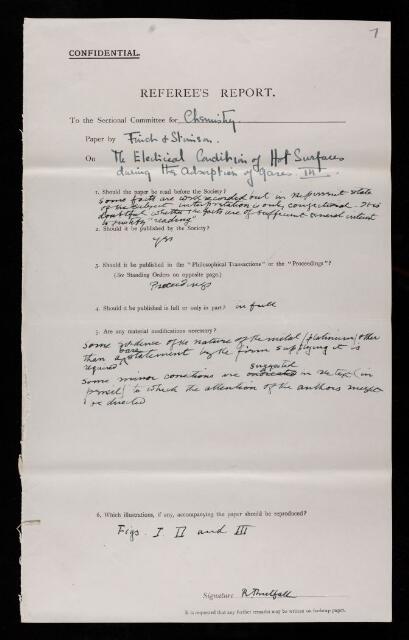 7
CONFIDENTIAL.
REFEREE'S REPORT.
To the Sectional Committee for Chemistry.
Paper by Finch & Stimson.
On The Electrical Condition of Hot Surfaces
during the Adsorption of gases. III.
1. Should the paper be read before the Society?
Some facts are well recorded but in the present state
of the subject interpretation is only conjectural. It is
doubtful whether the facts are of sufficient general interest
to justify "reading"
2. Should it be published by the Society?
yes
3. Should it be published in the "Philosophical Transactions" or the "Proceedings"?
(See Standing Orders on opposite page.)
Proceedings
4. Should it be published in full or only in part? in full
5. Are any material modifications necessary?
Some evidence of the nature of the metal (platinum) other
than a bare statement by the firm supplying it is
required.
Some minor corrections are suggested in the text (in
pencil) to which the attention of the authors might
be directed
6. Which illustrations, if any, accompanying the paper should be reproduced?
Figs. I II and III
Signature R Threlfall
It is requested that any further remarks may be written on foolscap paper.